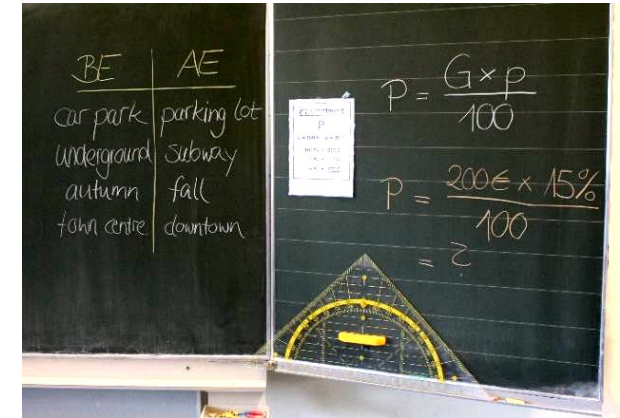 BE AE
car park parking lot
underground subway
autumn fall
town centre downtown
P = G x p
100
P = 200€ x 15%
100
= ?
P